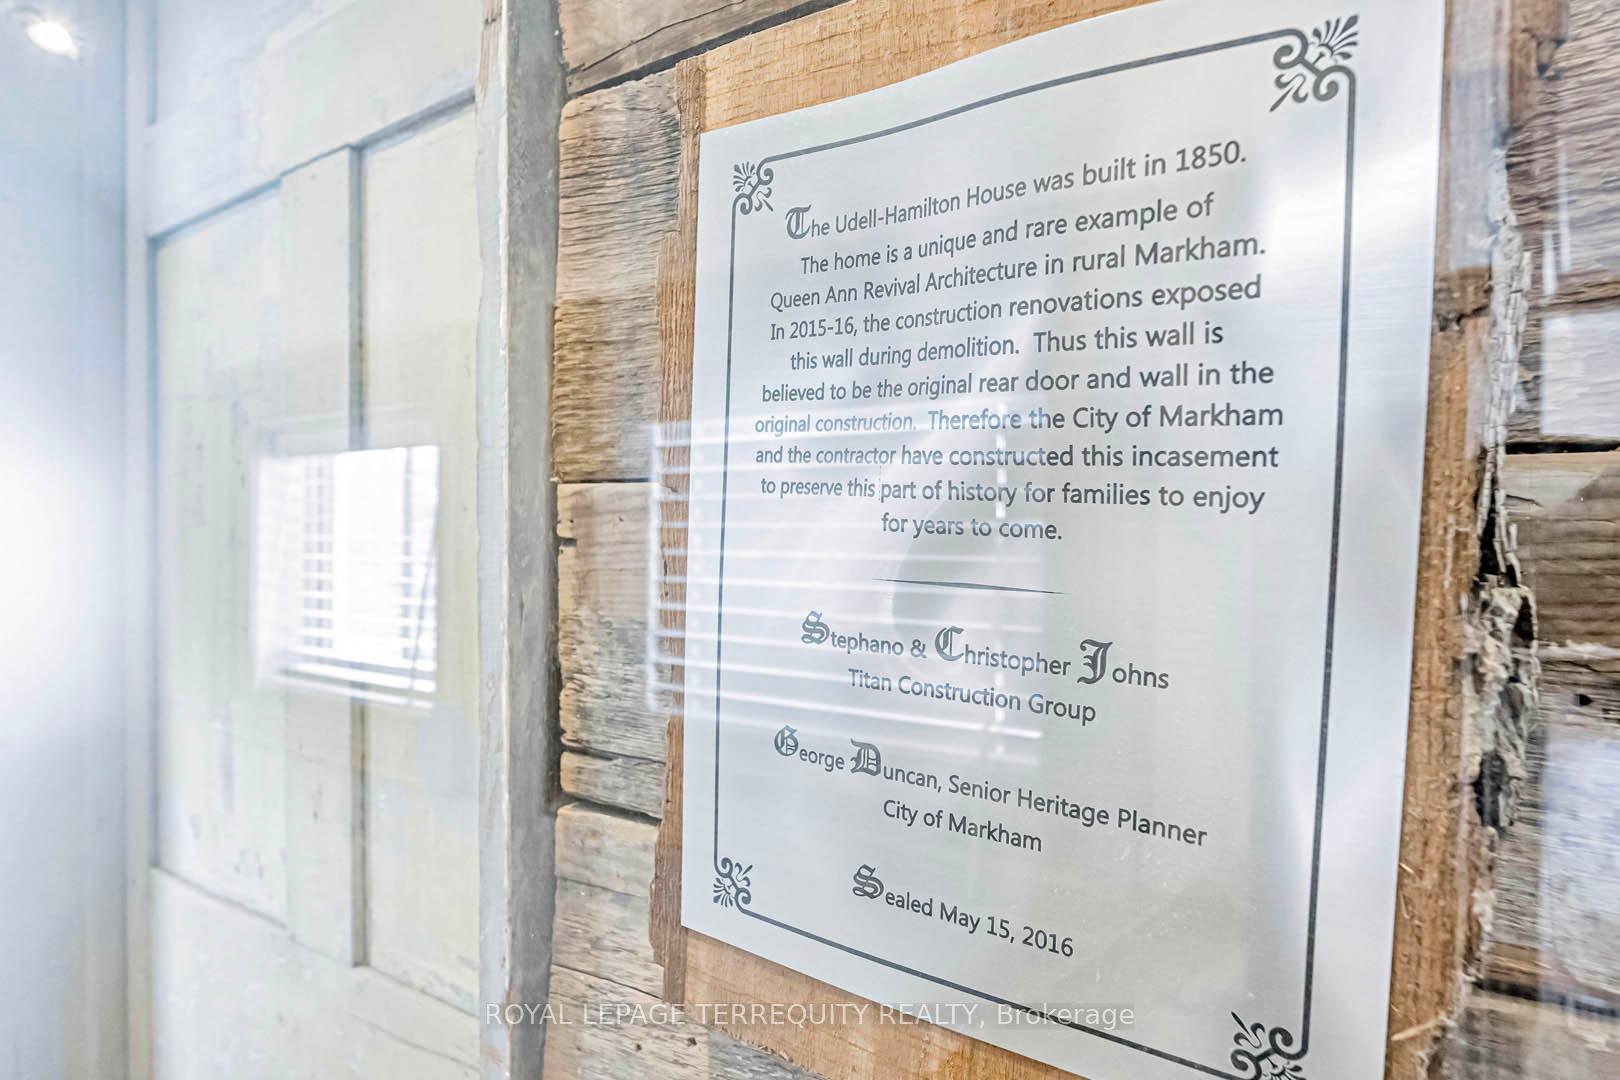 The Udell-Hamilton House was built in 1850.
The home is a unique and rare example of
Queen Ann Revival Architecture in rural Markham.
In 2015-16, the construction renovations exposed
this wall during demolition. Thus this wall is
believed to be the original rear door and wall in the
original construction. Therefore the City of Markham
and the contractor have constructed this incasement
to preserve this part of history for families to enjoy
for years to come.
Stephano & Christopher Johns
Titan Construction Group
George Duncan, Senior Heritage Planner
City of Markham
Sealed May 15, 2016
ROYAL LEPAGE TERREQUITY REALTY, Brokerage